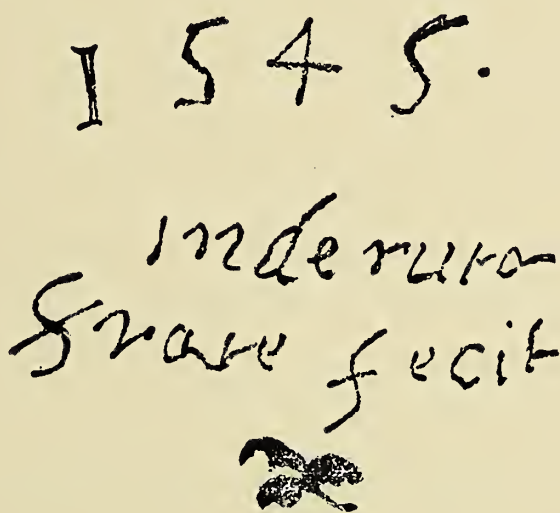 1545.
inderuta
frate fecit